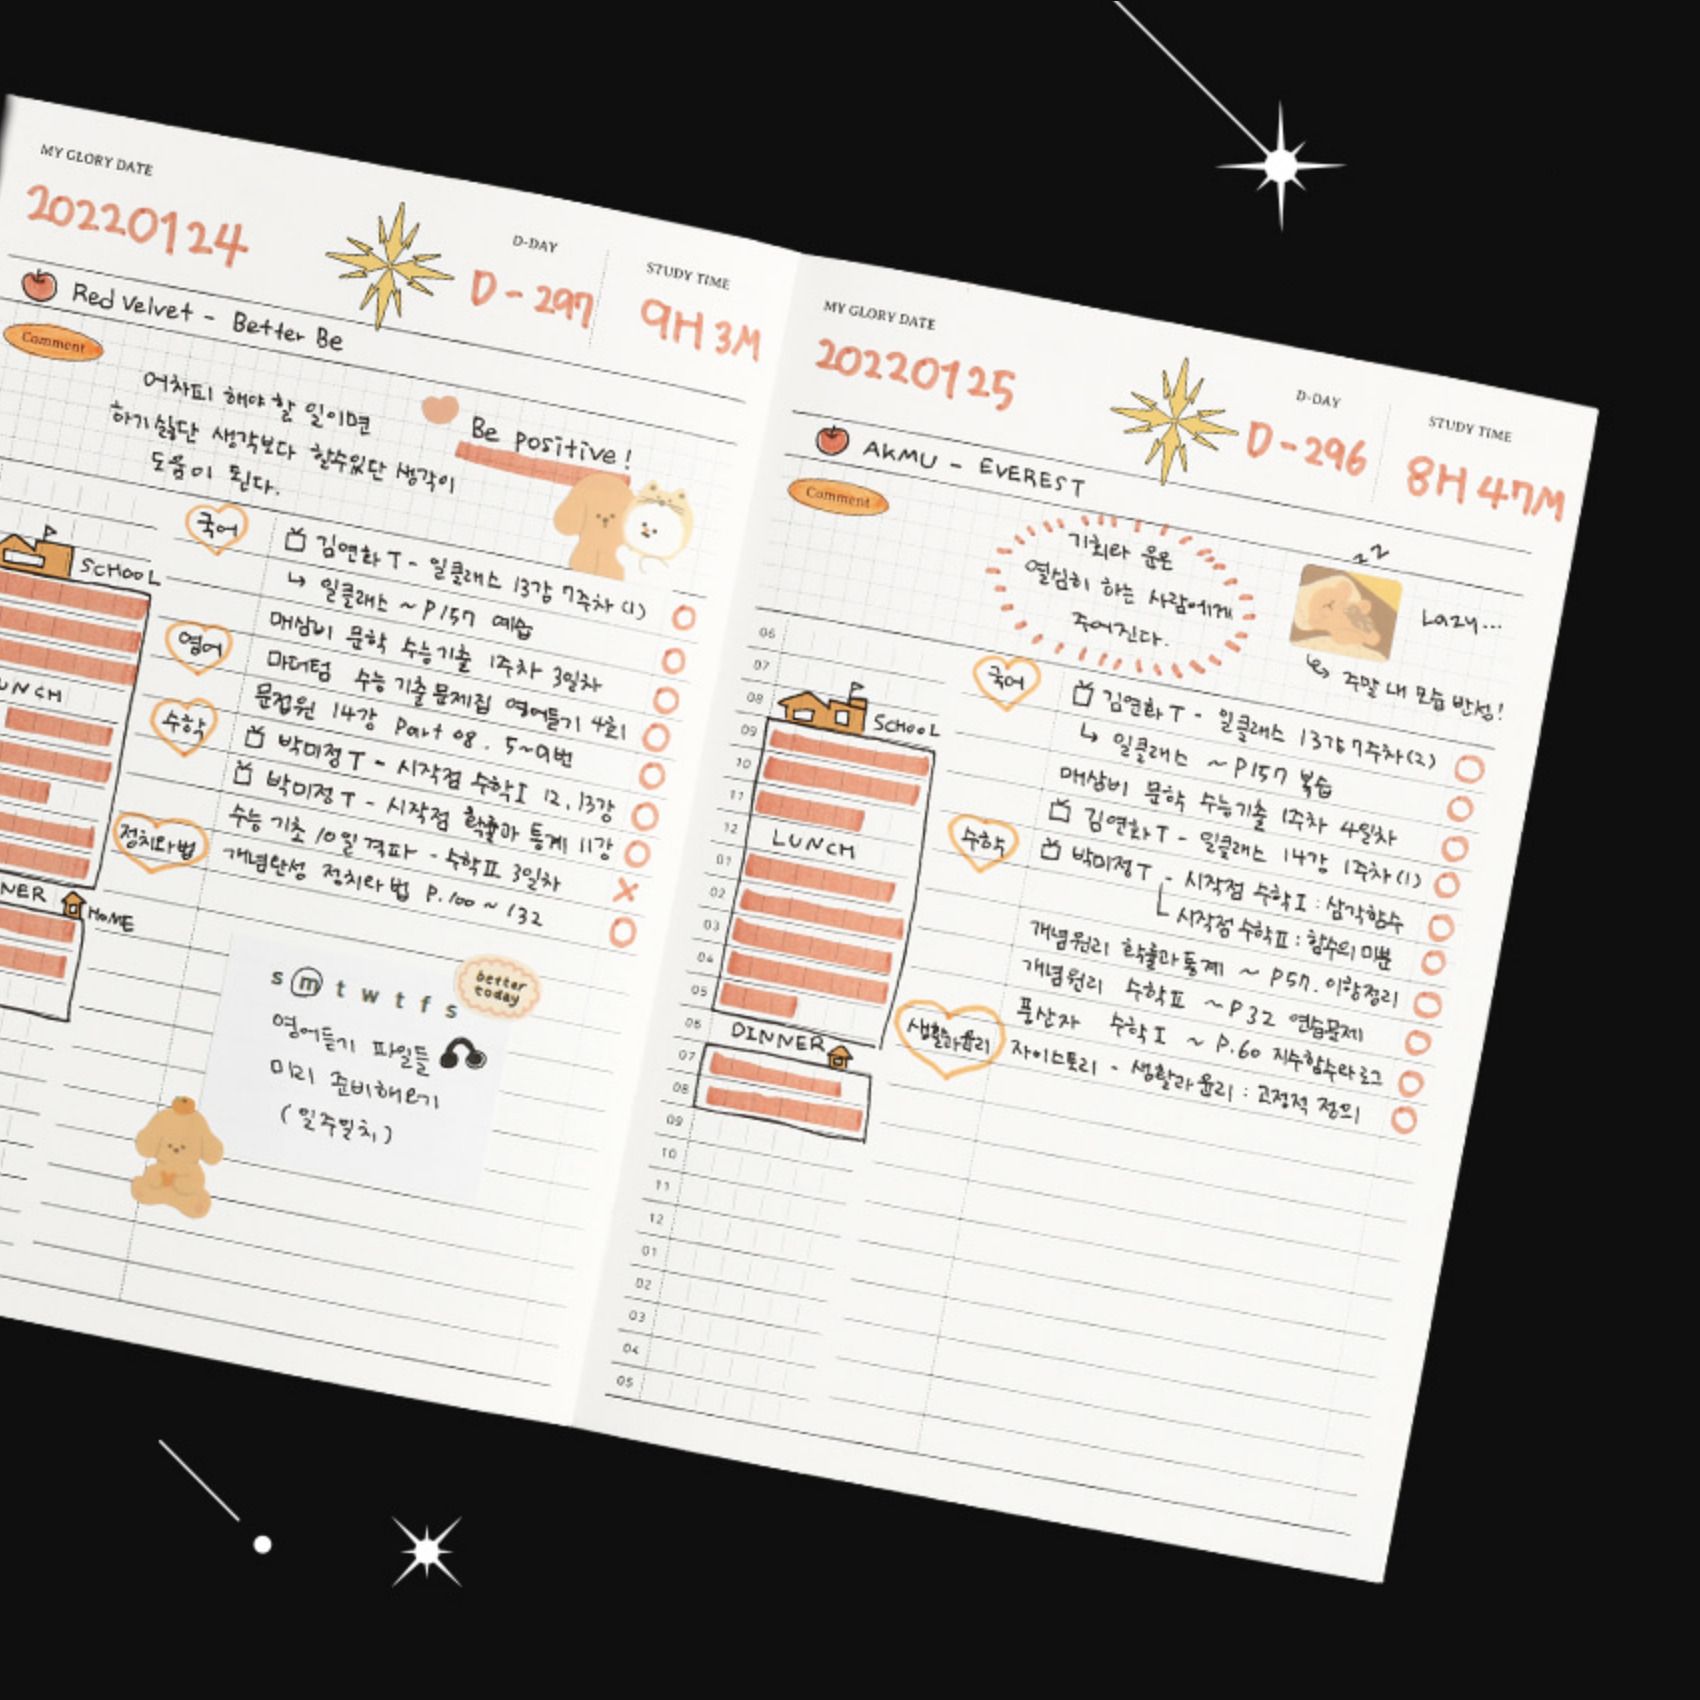 MY GLORY DATE
20220124
D-DAY
D-297
STUDY TIME
9H 3M
Red Velvet - Better Be
Comment
어차피 해야 할 일이면
하기싫단 생각보다 할수있단 생각이
도움이 된다.
Be positive!
SCHOOL
UNCH
NER
HOME
국어
김연화T - 일클래스 13강 7주차(1)
↳ 일클래스 ~P157 예습
매삼비 문학 수능기출 1주차 3일차
영어
마더텅 수능기출문제집 영어듣기 4회
문전원 14강 Part 08. 5~9번
수학
박미정T - 시작점 수학I 12, 13강
박미정T - 시작점 확률과 통계 11강
수능 기초 10일 격파 - 수학II 3일차
정치와법
개념완성 정치와 법 P.100 ~ 132
s m t w t f s
better
today
영어듣기 파일들
미리 준비해오기
(일주일치)
MY GLORY DATE
20220125
D-DAY
D-296
STUDY TIME
8H 47M
AKMU - EVEREST
Comment
기회와 운은
열심히 하는 사람에게
주어진다.
zZ
Lazy...
↳ 주말 내 모습 반성!
06
07
08
09
10
11
12
01
02
03
04
05
06
07
08
09
10
11
12
01
02
03
04
05
SCHOOL
LUNCH
DINNER
국어
김연화T - 일클래스 13강 7주차(2)
↳ 일클래스 ~P157 복습
매삼비 문학 수능기출 1주차 4일차
김연화T - 일클래스 14강 1주차(1)
수학
박미정T - 시작점 수학I : 삼각함수
시작점 수학II : 함수의 미분
개념원리 확률과통계 ~ P57. 이항정리
개념원리 수학II ~P32 연습문제
풍산자 수학I ~ P.60 지수함수와로그
생활과윤리
자이스토리 - 생활과 윤리 : 고정적 정의